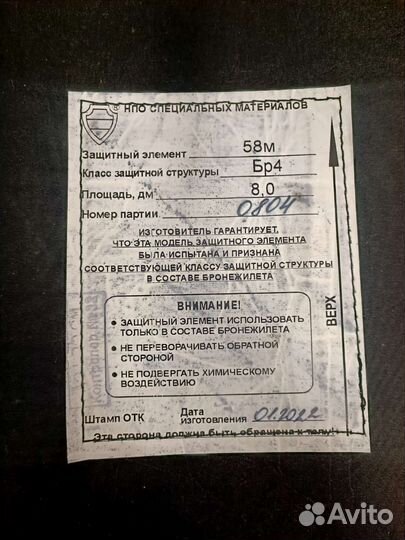 НПО СПЕЦИАЛЬНЫХ МАТЕРИАЛОВ
Защитный элемент 58м
Класс защитной структуры Бр4
Площадь, дм 8.0
Номер партии 0804
ИЗГОТОВИТЕЛЬ ГАРАНТИРУЕТ,
ЧТО ЭТА МОДЕЛЬ ЗАЩИТНОГО ЭЛЕМЕНТА
БЫЛА ИСПЫТАНА И ПРИЗНАНА
СООТВЕТСТВУЮЩЕЙ КЛАССУ ЗАЩИТНОЙ СТРУКТУРЫ
В СОСТАВЕ БРОНЕЖИЛЕТА
ВНИМАНИЕ!
• ЗАЩИТНЫЙ ЭЛЕМЕНТ ИСПОЛЬЗОВАТЬ
ТОЛЬКО В СОСТАВЕ БРОНЕЖИЛЕТА
• НЕ ПЕРЕВОРАЧИВАТЬ ОБРАТНОЙ
СТОРОНОЙ
• НЕ ПОДВЕРГАТЬ ХИМИЧЕСКОМУ
ВОЗДЕЙСТВИЮ
ВЕРХ
Контролер
Штамп ОТК Дата
изготовления 01.2022
Эта сторона должна быть обращена к телу!
Avito